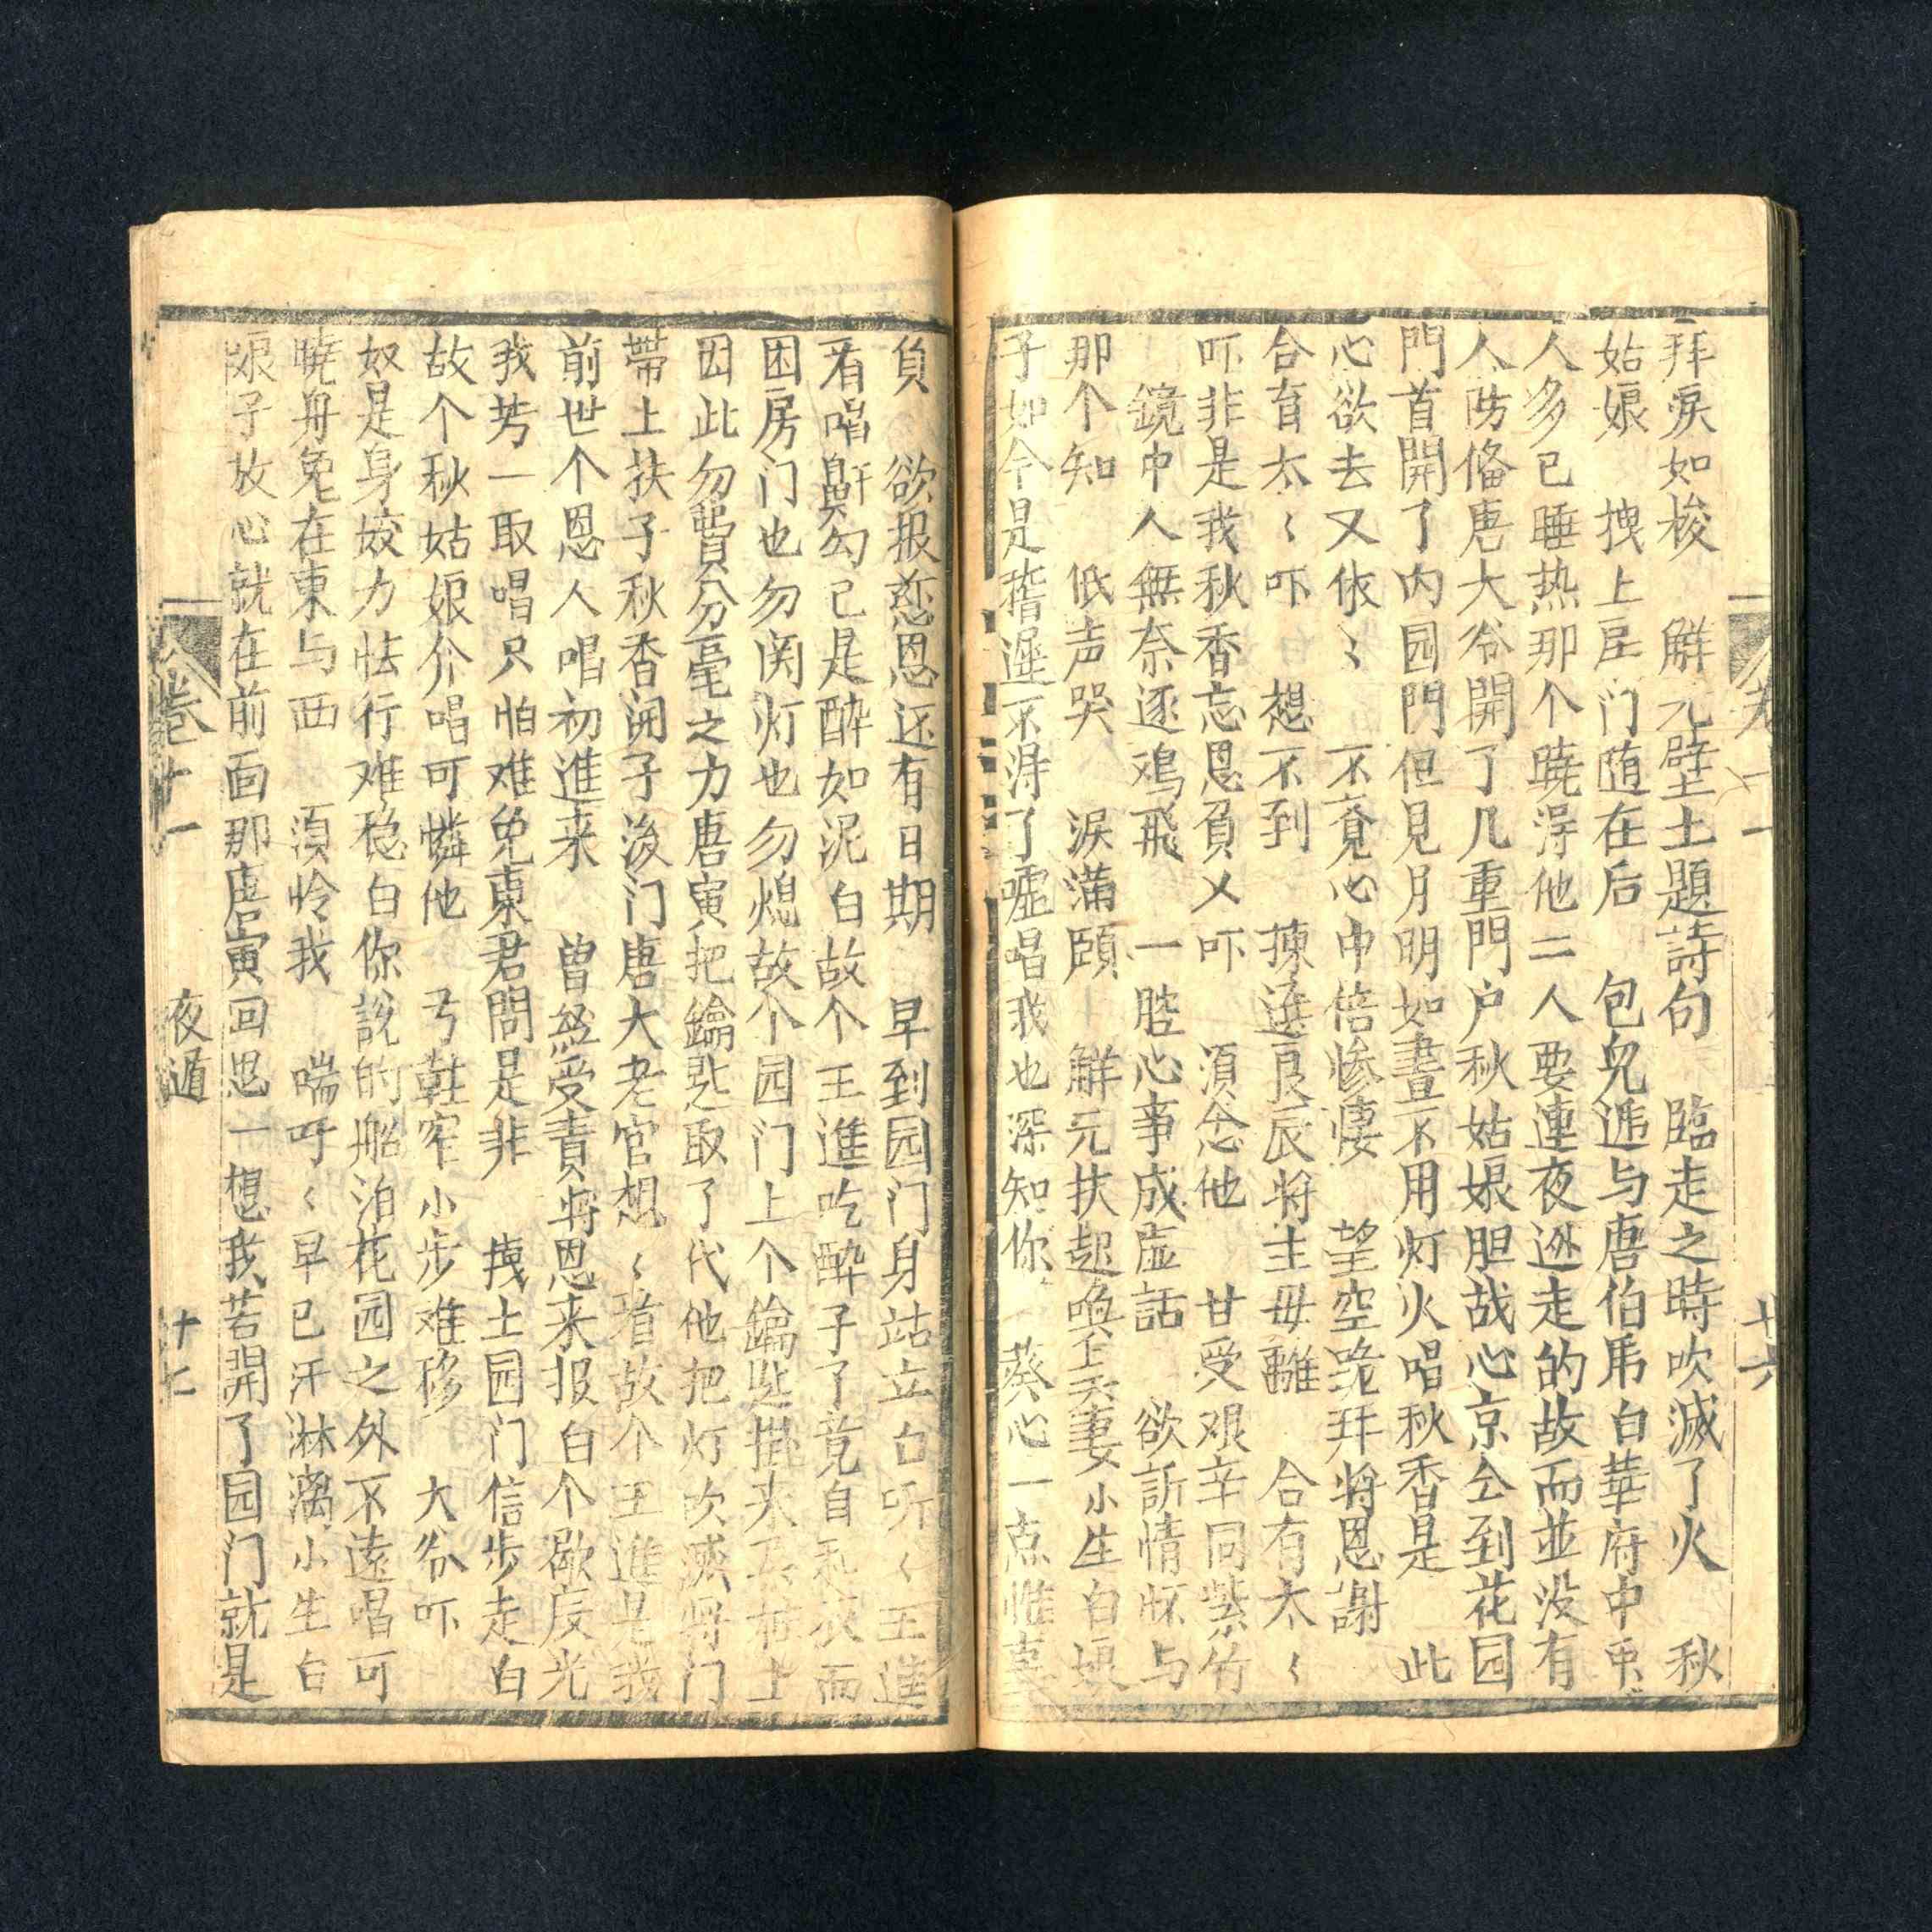 拜涙如梭　觧元壁土題詩句　臨走之時吹滅了火　秋
姑娘　拽上房门随在后　包皃逓与唐伯虎白華府中
人多已睡热那个曉淂他二人要連夜逃走的故而並没有
人防俻唐大爷開了几重門户秋姑娘胆战心京仝到花园
門首開了内园門但見月明如晝不用灯火唱秋香是　此
心欲去又依〻　不覔心中倍惨悽　望空跪拜將恩謝
合育太〻吓　想不到　揀選良辰將主母離　合有太〻
吓非是我秋香忘恩負义吓　湏念他　甘受艰辛同紫竹
鏡中人無奈逐鳮飛　一腔心事成虚話　欲訴情怀与
那个知　低声哭　涙滿頤　觧元扶起喚　妻小生白娘
子如今是𨒈遲不淂了嘘唱我也深知你　葵心一点惟
卷十一
十六
負　欲报恩还有日期　早到园门身站立白听〻王進
看唱鼻鼾勾已是醉如泥白故个王進吃醉子了竟自和衣而
困房门也勿関灯也勿熄故个园门上个鑰匙掛来　上
因此勿費分毫之力唐寅把鑰匙取了代他把灯吹滅将门
帶上扶子秋香開子後门唐大老官想〻看故个王進是我
前世个恩人唱初進来　曾經受責將恩来报白个歇辰光
我芳一取唱只怕难免東君問是非　拽上园门信步走白
故个秋姑娘介唱可憐他　弓鞋窄小步难移　大爷吓
奴是身姣力怯行难稳白你說的船泊花园之外不遠唱可
曉舟兔在東与西　湏怜我　喘吁〻早已汗淋漓小生白
娘子放心就在前面那唐寅回思一想我若開了园门就是
卷十一
夜遁
十七